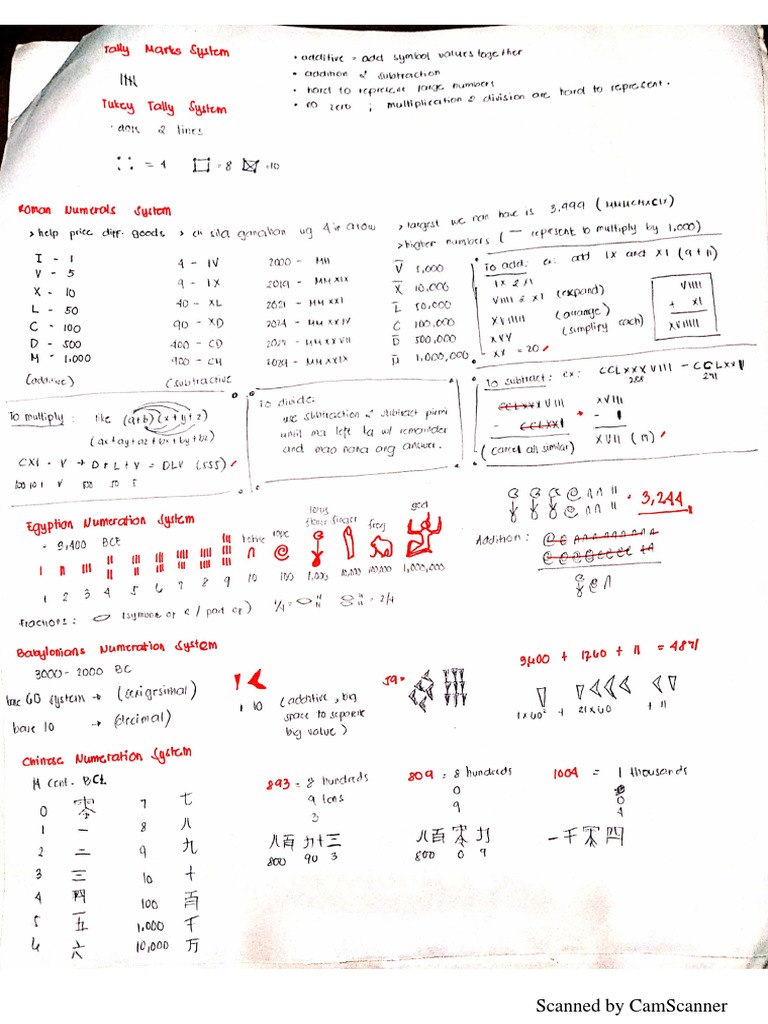 Tally Marks System
• additive = add symbol values together
• addition & subtraction
• hard to represent large numbers
• no zero ; multiplication & division are hard to represent.
Tukey Tally System
• dots & lines
= 4 = 8 = 10
Roman Numerals System
> help price diff. goods
> largest we can have is 3,999 (MMMCMXCIX)
> higher numbers ( — represent to multiply by 1,000)
I - 1
V - 5
X - 10
L - 50
C - 100
D - 500
M - 1,000
(additive)
4 - IV
9 - IX
40 - XL
90 - XD
400 - CD
900 - CM
(subtractive
2000 - MM
2019 - MMXIX
2021 - MMXXI
2024 - MMXXIV
2029 - MMXXIX
V̅ 5,000
X̅ 10,000
L̅ 50,000
C 100,000
D̅ 500,000
M̅ 1,000,000
To add: ex: add IX and XI (9 + 11)
IX & XI
VIIII & XI (expand)
XVIIIII (arrange)
XVV (simplify each)
XX = 20
VIIII
+ XI
XVIIIII
To multiply: like (a+b)(x+y+z)
(ax+ay+az+bx+by+bz)
CXI • V → D+L+V = DLV (555)
500 50 5
To divide:
use subtraction & subtract
until ma left w/ remainder
and mao nata ang answer.
To subtract: ex:
(cancel all similar)
XVIII
- 1
XVII
Egyptian Numeration System
- 3,400 BCE
1 2 3 4 5 6 7 8 9 10 100 1,000 10,000 100,000 1,000,000
rope
lotus
finger
frog
god
= 3,244
Addition:
Fractions: (symbol of r / part of) 1/4 = = 2/4
Babylonians Numeration System
3000 - 2000 BC
base 60 system → (sexigesimal)
base 10 → (decimal)
1 10
(additive, big
space to separate
big value)
59 =
3,600 + 1260 + 11 = 4871
1x60² + 21x60 + 11
Chinese Numeration System
14 Cent. BCE
0 零
1 一
2 二
3 三
4 四
5 五
6 六
7 七
8 八
9 九
10 十
100 百
1,000 千
10,000 万
893 = 8 hundreds
9 tens
3
八百 九十三
800 90 3
809 = 8 hundreds
0
9
八百 零 九
800 0 9
1004 = 1 thousands
0
4
一千零四
Scanned by CamScanner